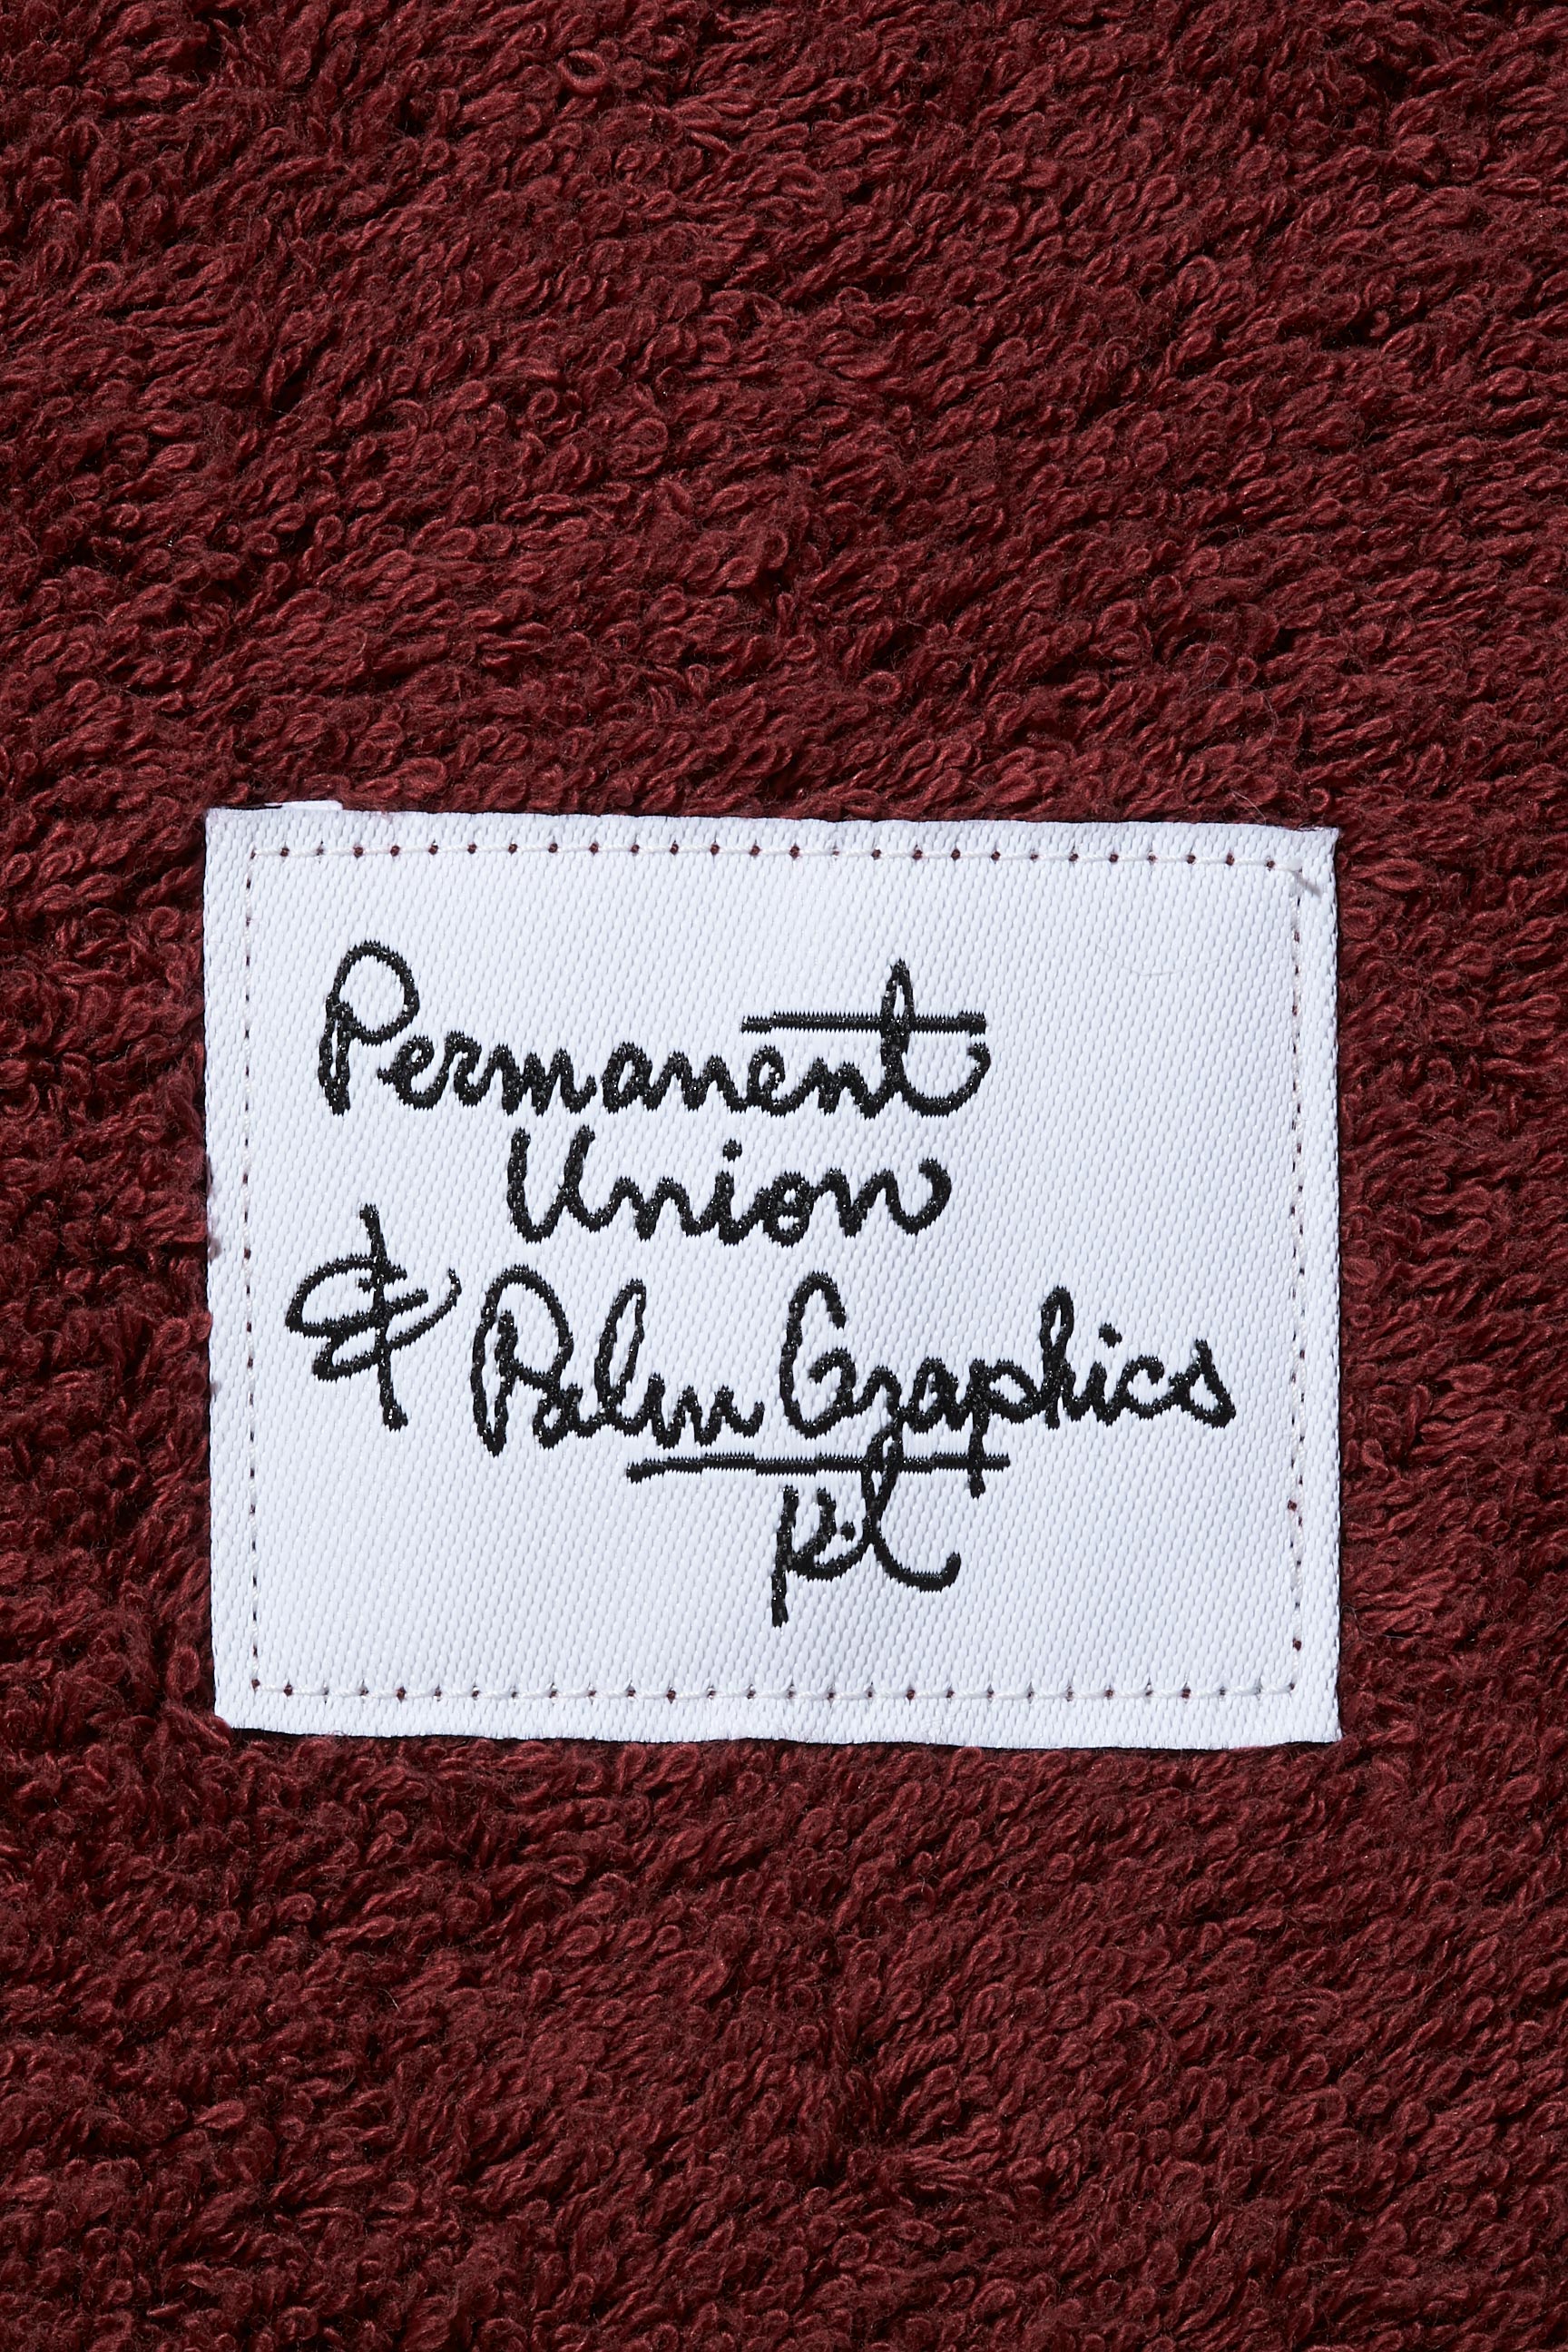 Permanent
Union
& Palm Graphics